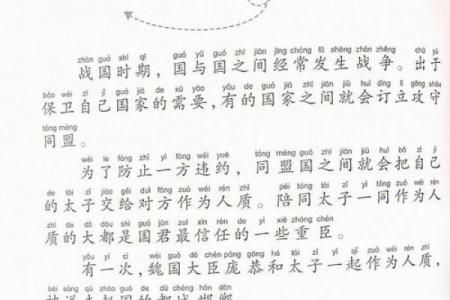 zhàn guó shí qī guó yǔ guó zhī jiān jīng cháng fā shēng zhàn zhēng chū yú
战国时期，国与国之间经常发生战争。出于
bǎo wèi zì jǐ guó jiā de xū yào yǒu de guó jiā zhī jiān jiù huì dìng lì gōng shǒu
保卫自己国家的需要，有的国家之间就会订立攻守
tóng méng
同盟。
wèi le fáng zhǐ yì fāng wéi yuē tóng méng guó zhī jiān jiù huì bǎ zì jǐ
为了防止一方违约，同盟国之间就会把自己
de tài zǐ jiāo gěi duì fāng zuò wéi rén zhì péi tóng tài zǐ yì tóng zuò wéi rén
的太子交给对方作为人质。陪同太子一同作为人
zhì de dà dōu shì guó jūn zuì xìn rèn de yì xiē zhòng chén
质的大都是国君最信任的一些重臣。
yǒu yí cì wèi guó dà chén páng gōng hé tài zǐ yì qǐ zuò wéi rén zhì
有一次，魏国大臣庞恭和太子一起作为人质，
bèi sòng qù zhào guó de dū chéng hán dān
被送去赵国的都城邯郸